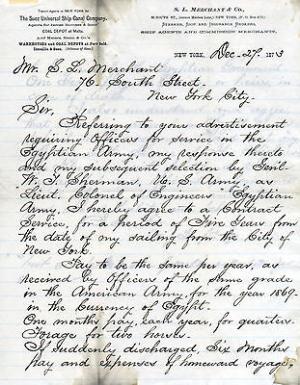 Transit Agents in NEW YORK for
The Suez Universal Ship Canal Company.
COAL DEPOT at Malta.
WAREHOUSES and COAL DEPOTS at Port Said,
S. L. MERCHANT & CO.,
SHIP AGENTS AND COMMISSION MERCHANTS,
NEW YORK, Dec. 27. 1873
Mr. S. L. Merchant
76. South Street.
New York City.
Sir,
Referring to your advertisement
requiring Officers for service in the
Egyptian Army, my response thereto
and my subsequent selection by Genl.
W. T. Sherman, U. S. Army, as
Lieut. Colonel of Engineers Egyptian
Army, I hereby agree to a Contract
Service, for a period of Five Years from
the date of my sailing from the City of
New York.
Pay to be the same per year, as
received by Officers of the same grade
in the American Army, for the year 1869.
in the Currency of Egypt.
One months pay, each year, for quarters.
Forage for two horses.
If Suddenly discharged Six Months
pay and expenses of homeward voyage.